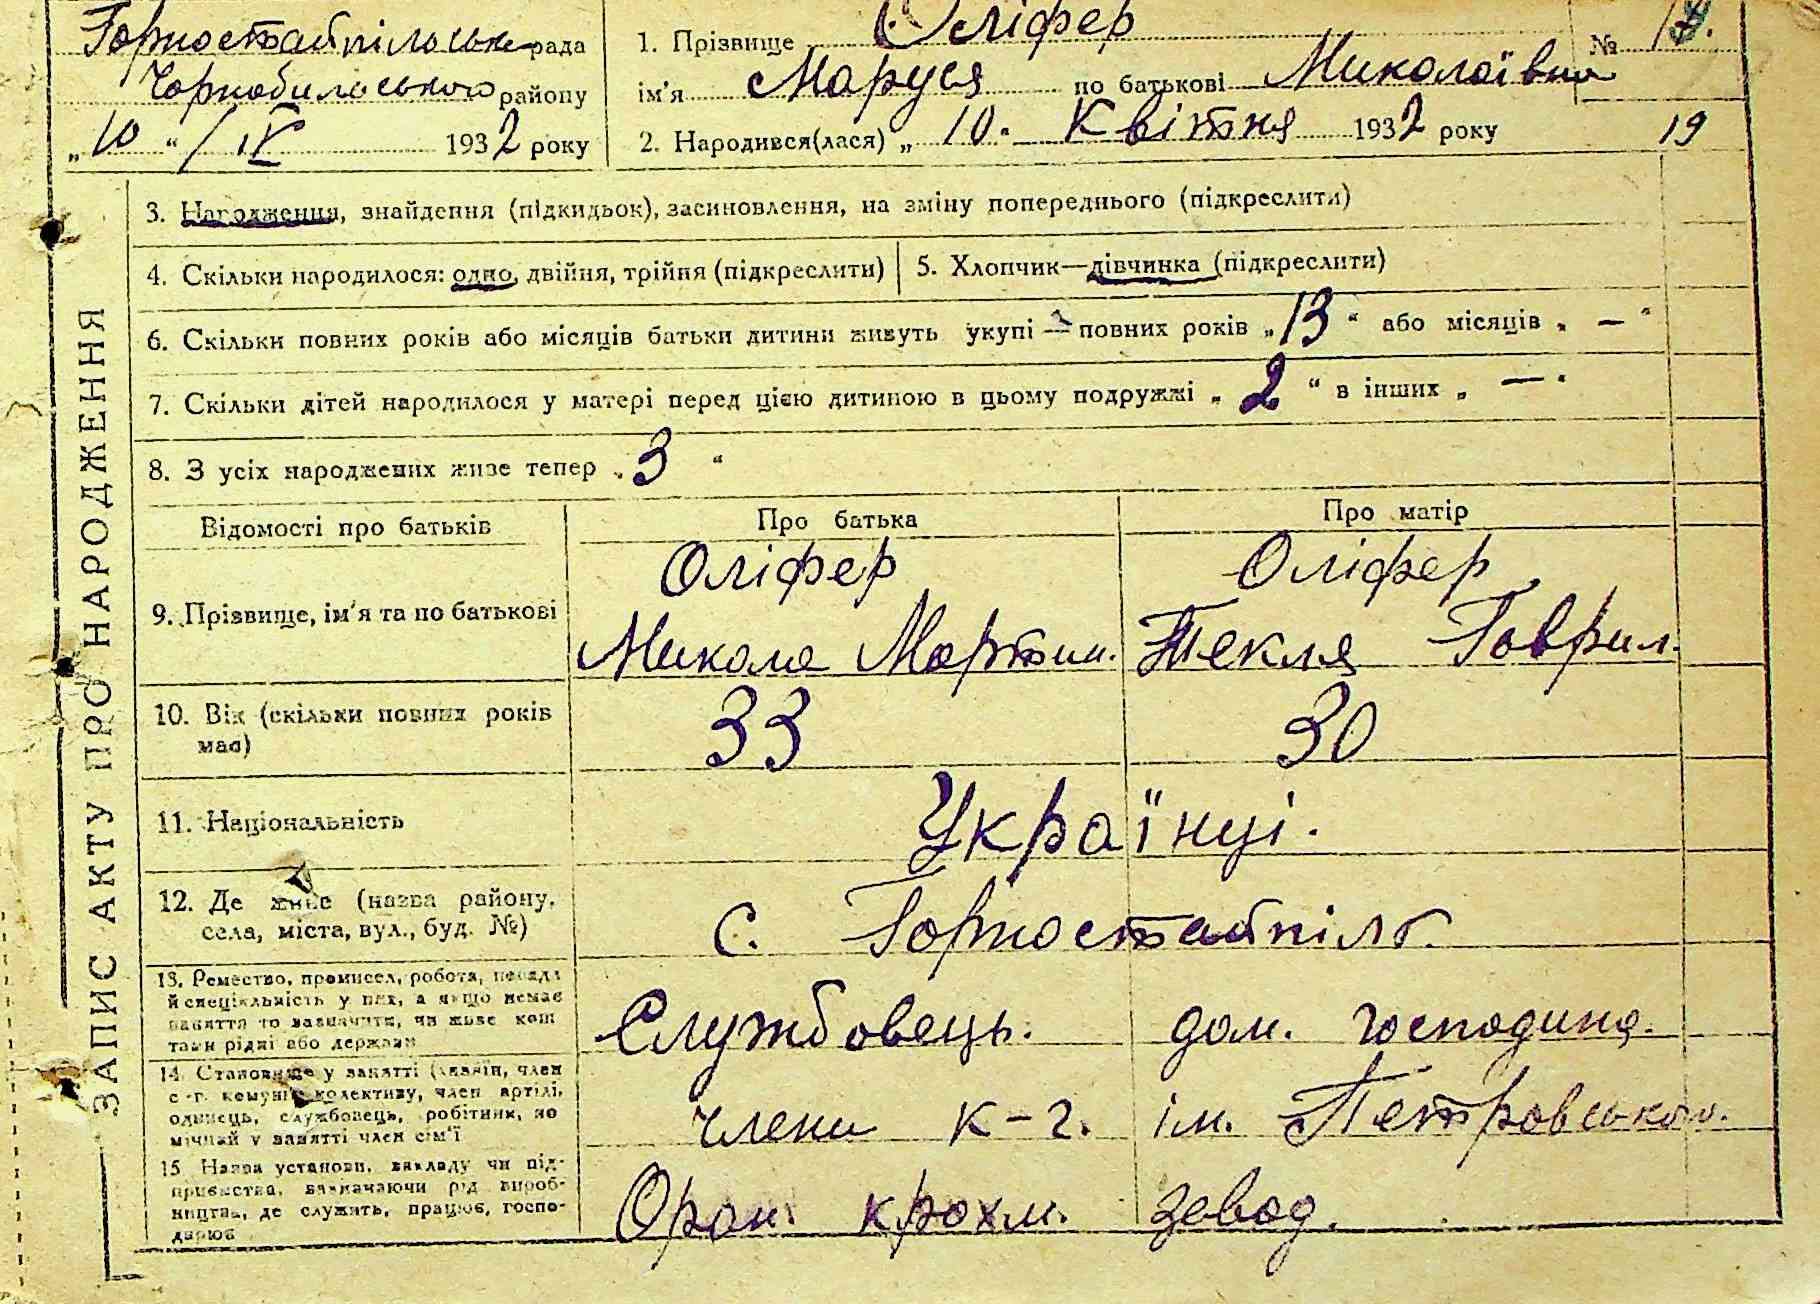 Горностайпільська рада
Чорнобильського району
„10“ / IV 1932 року
1. Прізвище Оліфер №
ім'я Маруся по батькові Миколаївна
2. Народився(лася) „10. Квітня 1932 року
19
ЗАПИС АКТУ ПРО НАРОДЖЕННЯ
3. Народження, знайдення (підкидьок), засиновлення, на зміну попереднього (підкреслити)
4. Скільки народилося: одно, двійня, трійня (підкреслити)
5. Хлопчик—дівчинка (підкреслити)
6. Скільки повних років або місяців батьки дитини живуть укупі — повних років „13“ або місяців „—“
7. Скільки дітей народилося у матері перед цією дитиною в цьому подружжі „2“ в інших „—“
8. З усіх народжених живе тепер „3“
Відомості про батьків
Про батька
Про матір
9. Прізвище, ім'я та по батькові
Оліфер
Микола Мартин.
Оліфер
Текля Гаврил.
10. Вік (скільки повних років
має)
33
30
11. Національність
Українці.
12. Де живе (назва району,
села, міста, вул., буд. №)
с. Горностайпіль.
13. Ремество, промисел, робота, посада
й спеціяльність у них, а якщо немає
заняття то зазначити, чи живе кош
тами рідні або держави
Службовець.
дом. господина.
14. Становище у занятті (хазяїн, член
с.-г. комуни колективу, член артілі,
одинець, службовець, робітник, по
мічний у занятті член сім'ї
члени к-г. ім. Петровського.
15. Назва установи, закладу чи під-
приємства, зазначаючи рід вироб-
ництва, де служить, працює, госпо-
дарює
крохм. завод.